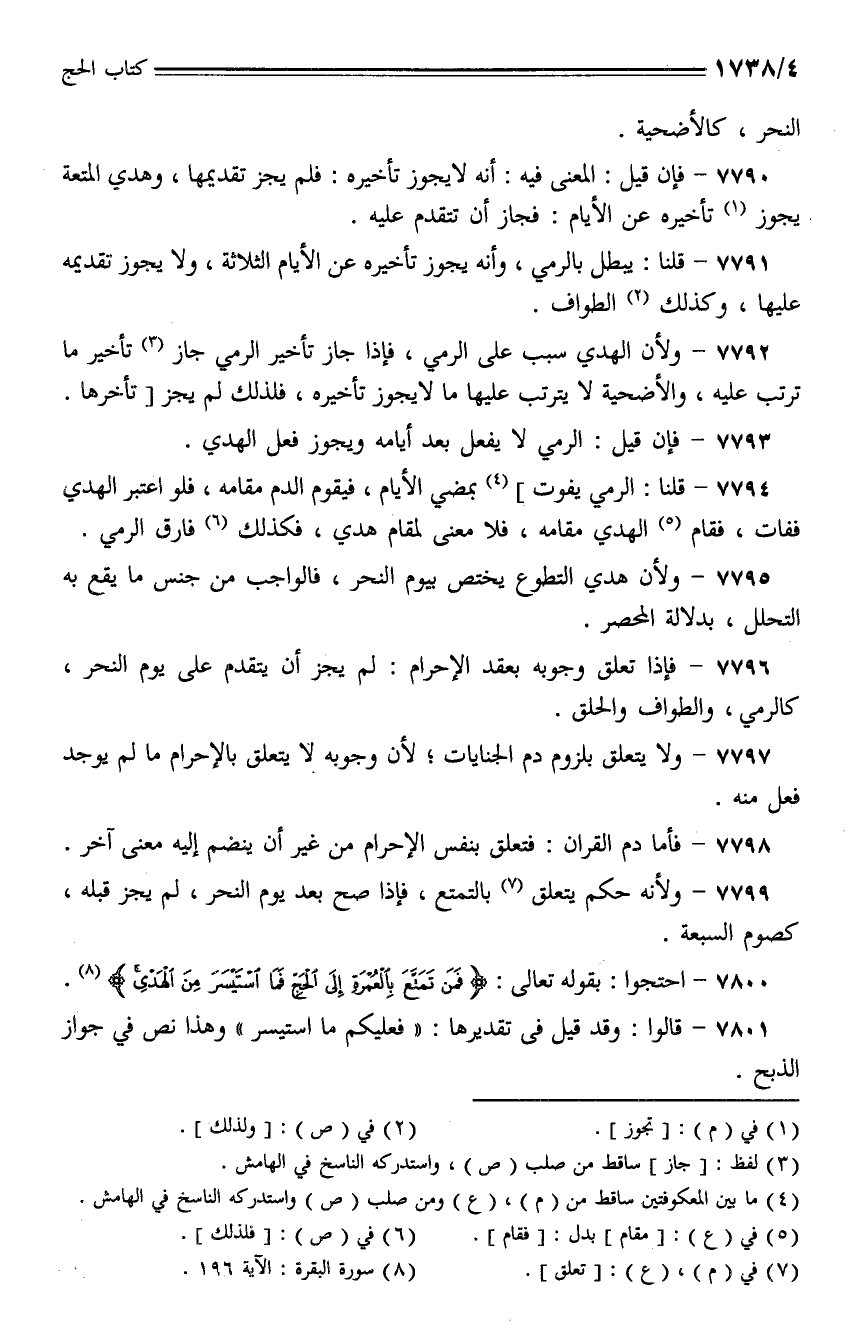 ١٧٣٨/٤ كتاب الحج
النحر ، كالأضحية .
٧٧٩٠ – فإن قيل : المعنى فيه : أنه لايجوز تأخيره : فلم يجز تقديمها ، وهدي المتعة
يجوز (١) تأخيره عن الأيام : فجاز أن تتقدم عليه .
٧٧٩١ – قلنا : يبطل بالرمي ، وأنه يجوز تأخيره عن الأيام الثلاثة ، ولا يجوز تقديمه
عليها ، وكذلك (٢) الطواف .
٧٧٩٢ – ولأن الهدي سبب على الرمي ، فإذا جاز تأخير الرمي جاز (٣) تأخير ما
ترتب عليه ، والأضحية لا يترتب عليها ما لايجوز تأخيره ، فلذلك لم يجز [ تأخرها .
٧٧٩٣ – فإن قيل : الرمي لا يفعل بعد أيامه ويجوز فعل الهدي .
٧٧٩٤ – قلنا : الرمي يفوت ] (٤) بمضي الأيام ، فيقوم الدم مقامه ، فلو اعتبر الهدي
ففات ، فقام (٥) الهدي مقامه ، فلا معنى لمقام هدي ، فكذلك (٦) فارق الرمي .
٧٧٩٥ – ولأن هدي التطوع يختص بيوم النحر ، فالواجب من جنس ما يقع به
التحلل ، بدلالة المحصر .
٧٧٩٦ – فإذا تعلق وجوبه بعقد الإحرام : لم يجز أن يتقدم على يوم النحر ،
كالرمي ، والطواف والحلق .
٧٧٩٧ – ولا يتعلق بلزوم دم الجنايات ؛ لأن وجوبه لا يتعلق بالإحرام ما لم يوجد
فعل منه .
٧٧٩٨ – فأما دم القران : فتعلق بنفس الإحرام من غير أن ينضم إليه معنى آخر .
٧٧٩٩ – ولأنه حكم يتعلق (٧) بالتمتع ، فإذا صح بعد يوم النحر ، لم يجز قبله ،
كصوم السبعة .
٧٨٠٠ – احتجوا : بقوله تعالى : ﴿ فَمَن تَمَتَّعَ بِٱلْعُمْرَةِ إِلَى ٱلْحَجِّ فَمَا ٱسْتَيْسَرَ مِنَ ٱلْهَدْيِۚ ﴾ (٨) .
٧٨٠١ – قالوا : وقد قيل فى تقديرها : « فعليكم ما استيسر » وهذا نص في جواز
الذبح .
(١) في ( م ) : [ تجوز ] . (٢) في ( ص ) : [ ولذلك ] .
(٣) لفظ : [ جاز ] ساقط من صلب ( ص ) ، واستدركه الناسخ في الهامش .
(٤) ما بين المعكوفتين ساقط من ( م ) ، ( ع ) ومن صلب ( ص ) واستدركه الناسخ في الهامش .
(٥) في ( ع ) : [ مقام ] بدل : [ فقام ] . (٦) في ( ص ) : [ فلذلك ] .
(٧) في ( م ) ، ( ع ) : [ تعلق ] . (٨) سورة البقرة : الآية ١٩٦ .